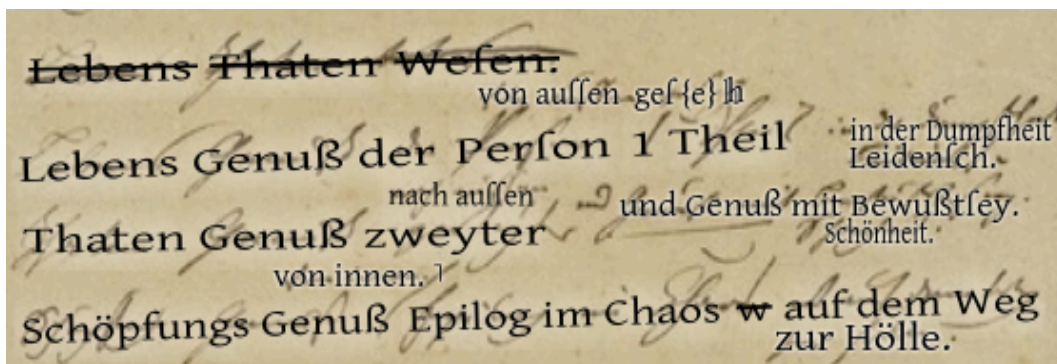 Lebens Thaten Weſen.
von auſſen geſ{e}h
Lebens Genuß der Perſon 1 Theil in der Dumpfheit
Leidenſch.
nach auſſen und Genuß mit Bewußtſey.
Thaten Genuß zweyter Schönheit.
von innen. ⅂
Schöpfungs Genuß Epilog im Chaos w auf dem Weg
zur Hölle.